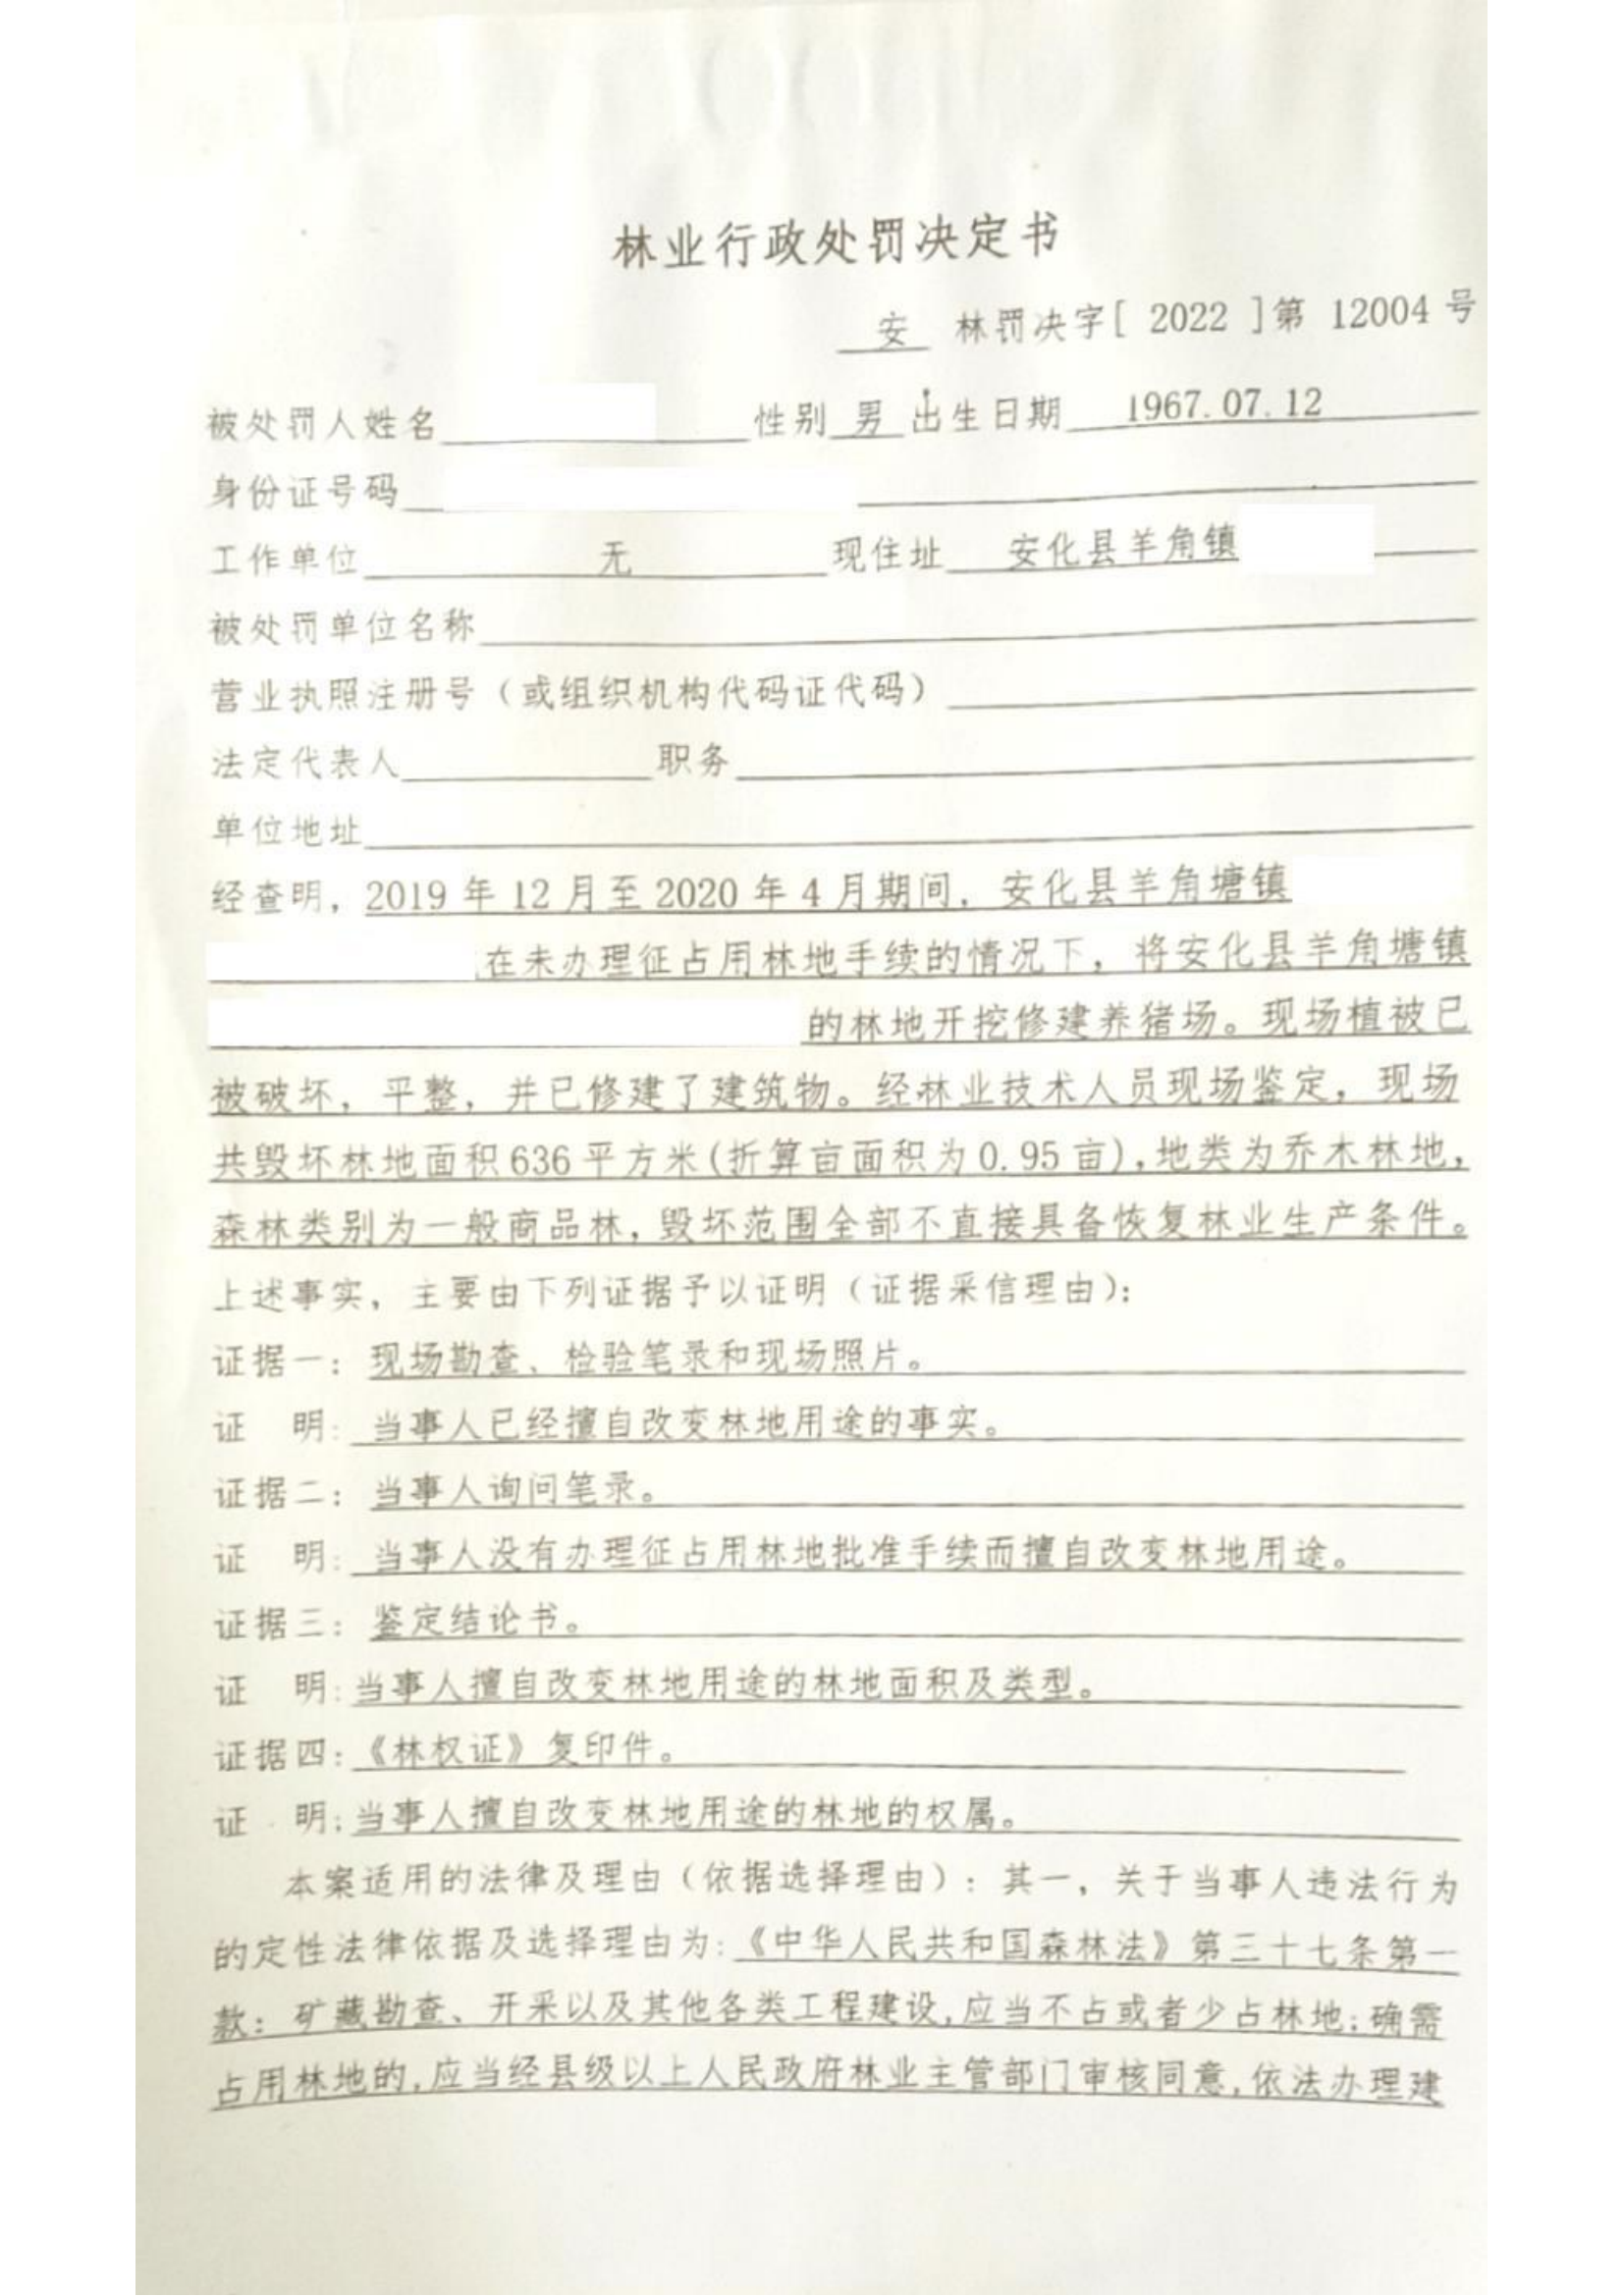 林业行政处罚决定书
安 林罚决字[ 2022 ]第 12004 号
被处罚人姓名 性别 男 出生日期 1967.07.12
身份证号码
工作单位 无 现住址 安化县羊角镇
被处罚单位名称
营业执照注册号（或组织机构代码证代码）
法定代表人 职务
单位地址
经查明，2019 年 12 月至 2020 年 4 月期间，安化县羊角塘镇
在未办理征占用林地手续的情况下，将安化县羊角塘镇
的林地开挖修建养猪场。现场植被已
被破坏，平整，并已修建了建筑物。经林业技术人员现场鉴定，现场
共毁坏林地面积 636 平方米(折算亩面积为 0.95 亩),地类为乔木林地,
森林类别为一般商品林，毁坏范围全部不直接具备恢复林业生产条件。
上述事实，主要由下列证据予以证明（证据采信理由）：
证据一：现场勘查、检验笔录和现场照片。
证 明：当事人已经擅自改变林地用途的事实。
证据二：当事人询问笔录。
证 明：当事人没有办理征占用林地批准手续而擅自改变林地用途。
证据三：鉴定结论书。
证 明：当事人擅自改变林地用途的林地面积及类型。
证据四：《林权证》复印件。
证 明：当事人擅自改变林地用途的林地的权属。
本案适用的法律及理由（依据选择理由）：其一，关于当事人违法行为
的定性法律依据及选择理由为:《中华人民共和国森林法》第三十七条第一
款：矿藏勘查、开采以及其他各类工程建设,应当不占或者少占林地;确需
占用林地的,应当经县级以上人民政府林业主管部门审核同意,依法办理建